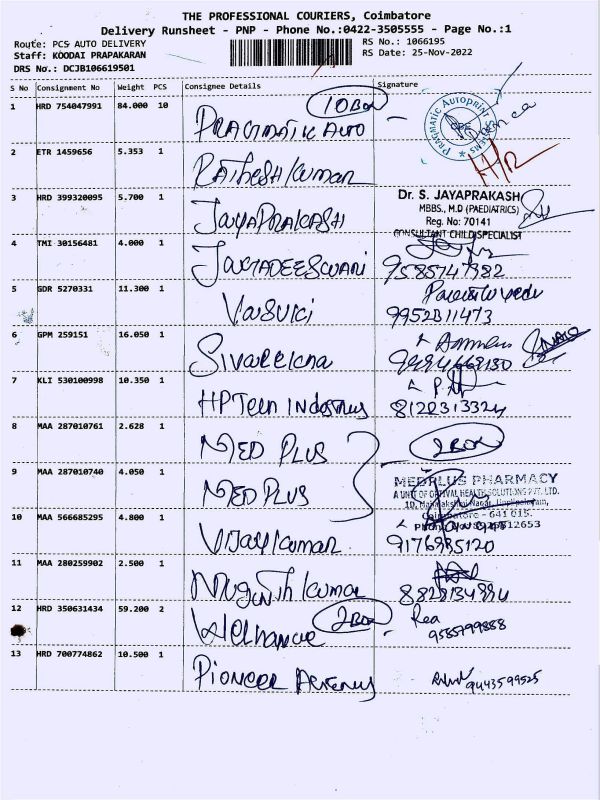 THE PROFESSIONAL COURIERS, Coimbatore
Delivery Runsheet - PNP - Phone No.:0422-3505555 - Page No.:1
Route: PCS AUTO DELIVERY
RS No.: 1066195
Staff: KOODAI PRAPAKARAN
RS Date: 25-Nov-2022
DRS No.: DCJB106619501
S No Consignment No Weight PCS Consignee Details Signature
1 HRD 754047991 84.000 10 PRAGMATIK AUTO 10 BOX
PRAGMATIC AUTOPRINT SYSTEMS
2 ETR 1459656 5.353 1 Rathesh Kumar
3 HRD 399320095 5.700 1 JAYAPRAKASH
Dr. S. JAYAPRAKASH
MBBS., M.D (PAEDIATRICS)
Reg. No: 70141
CONSULTANT CHILD SPECIALIST
4 TMI 30156481 4.000 1 JAGADEESWARI 9585747382
5 GDR 5270331 11.300 1 Vasuki
9952811473
6 GPM 259151 16.050 1
7 KLI 530100998 10.350 1 HP Teen
8122313324
8 MAA 287010761 2.628 1 MED PLUS 2 BOX
9 MAA 287010740 4.050 1 MED PLUS
MEDPLUS PHARMACY
A UNIT OF OPTIVAL HEALTH SOLUTIONS PVT. LTD.
Coimbatore - 641 015.
10 MAA 566685295 4.800 1 Vijay Kumar
9176985120
11 MAA 280259902 2.500 1 Kumar
12 HRD 350631434 59.200 2 2 BOX
9585799888
13 HRD 700774862 10.500 1 Pioneer
9443599525